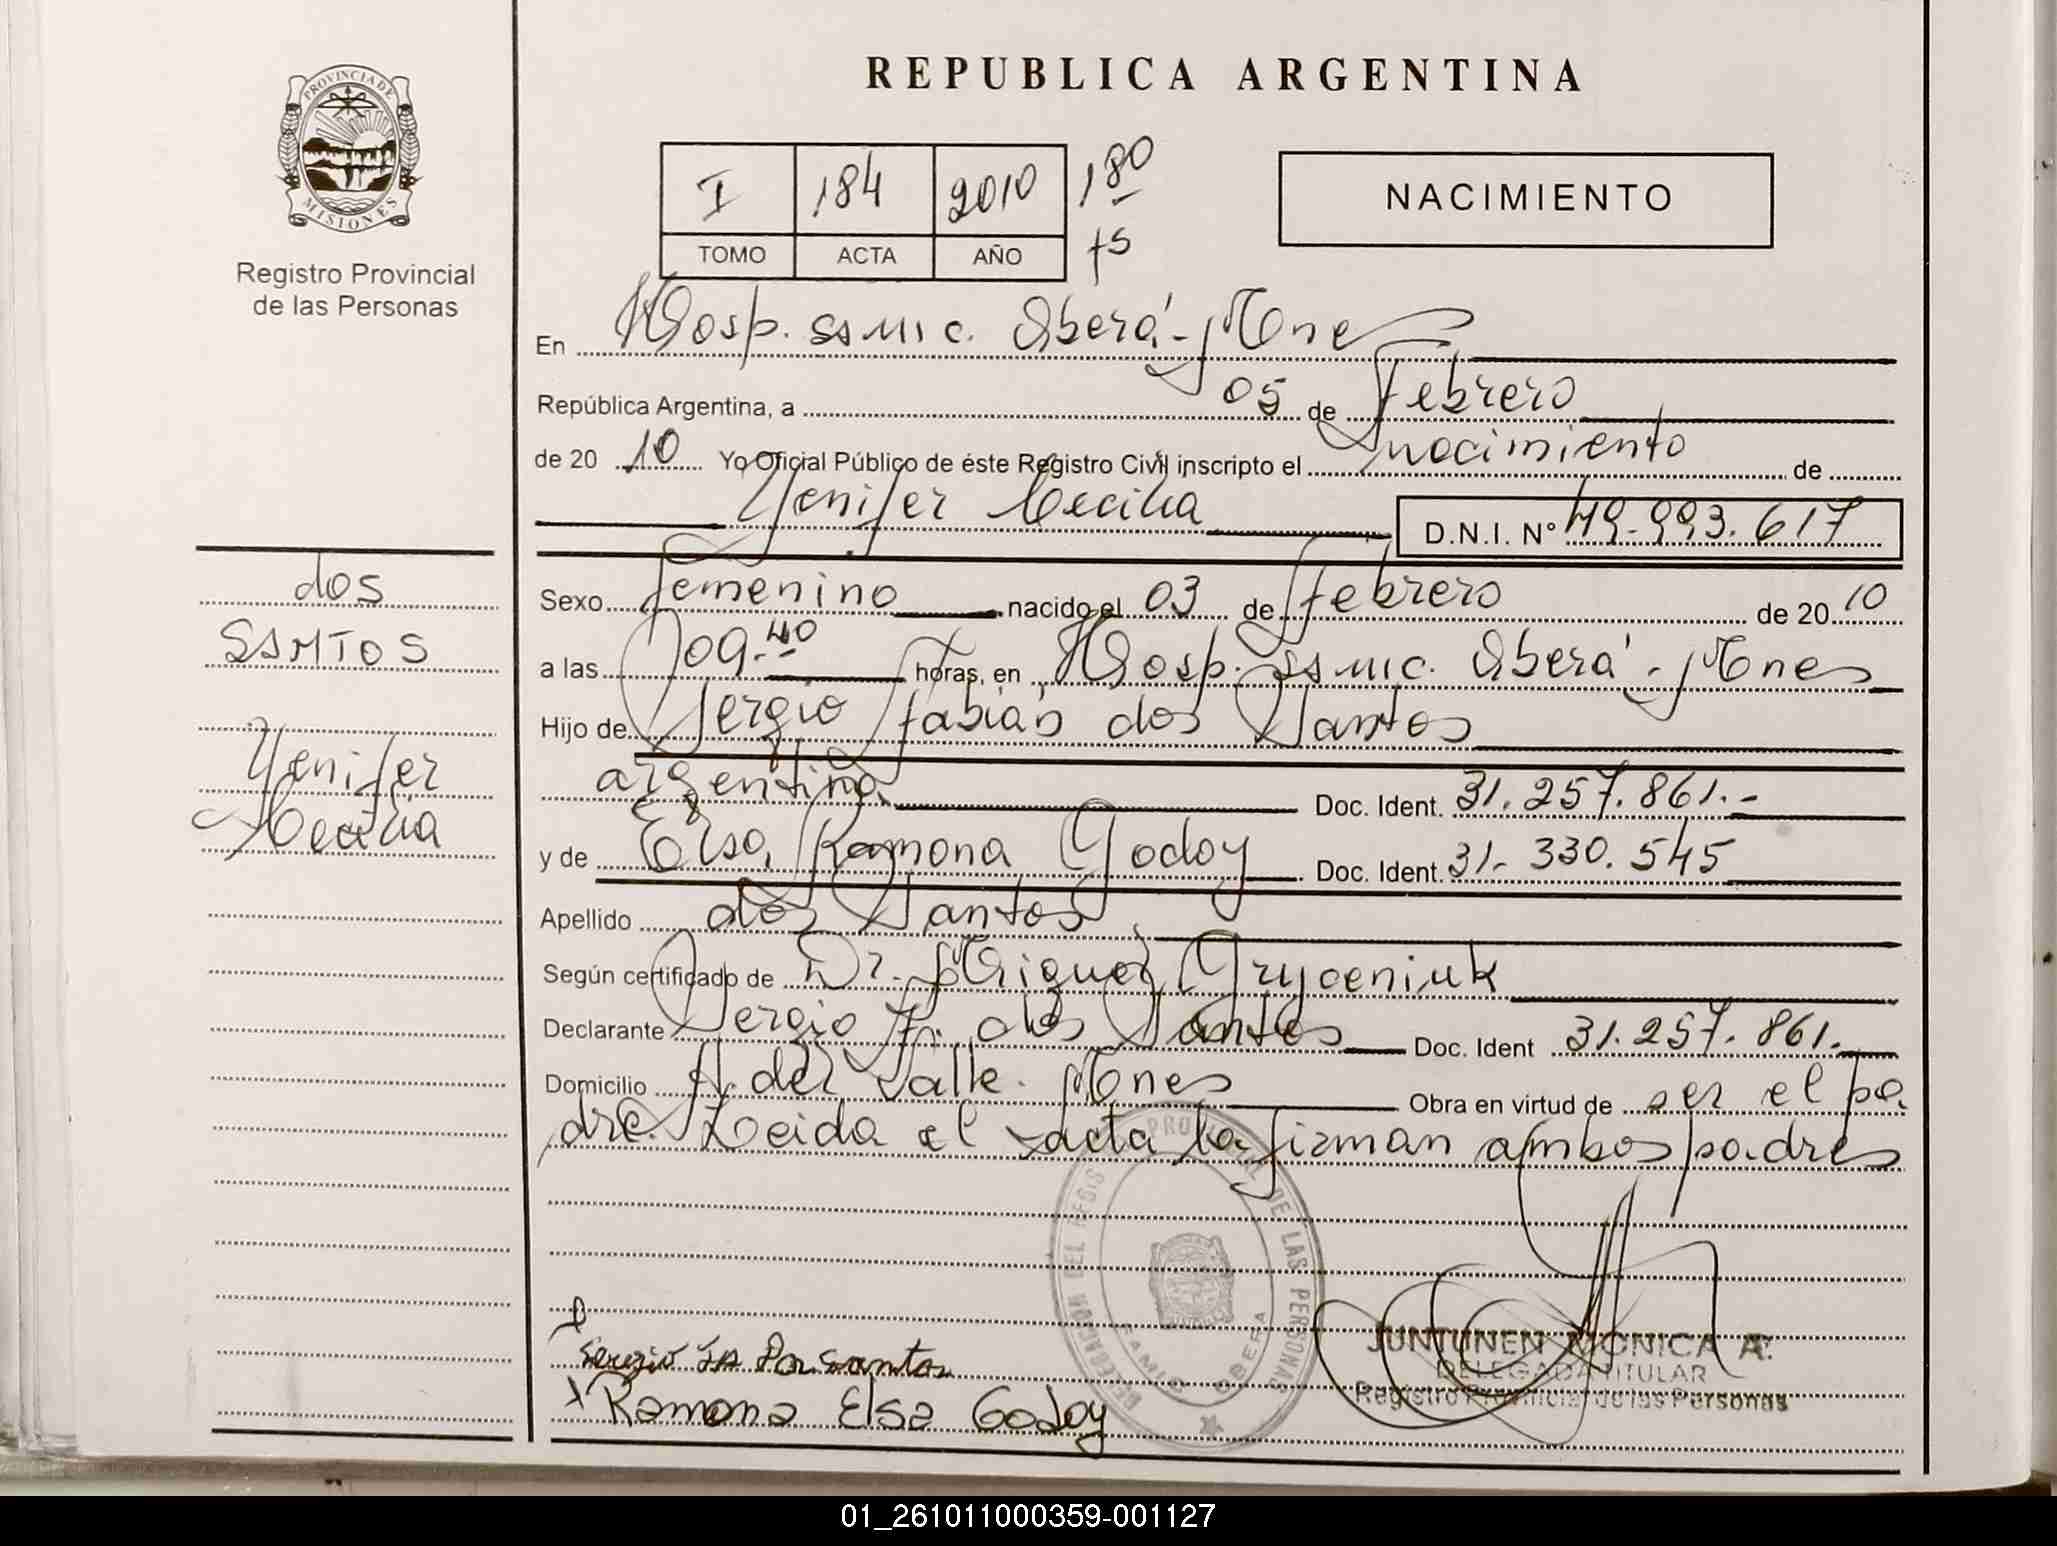 PROVINCIA DE
MISIONES
Registro Provincial
de las Personas
REPUBLICA ARGENTINA
I 184 2010 180
TOMO ACTA AÑO fs
NACIMIENTO
En Hosp. SAMIC. Oberá - Mnes
República Argentina, a 05 de Febrero
de 20 10 Yo Oficial Público de éste Registro Civil inscripto el nacimiento de
Yenifer Cecilia D.N.I. Nº 49.993.617
dos
SANTOS
Yenifer
Cecilia
Sexo femenino nacido el 03 de febrero de 20 10
a las 09.40 horas, en Hosp. SAMIC. Oberá - Mnes
Hijo de Sergio Fabián dos Santos
argentino. Doc. Ident. 31.257.861.-
y de Elsa Ramona Godoy Doc. Ident. 31-330.545
Apellido dos Santos
Según certificado de Dr. Miguel Gryceniuk
Declarante Sergio F. dos Santos Doc. Ident 31.257.861.
Domicilio A. del Valle. Mnes Obra en virtud de ser el pa
dre. Leida el acta la firman ambos padres
DELEGACION DEL REGIS PROVINCIAL DE LAS PERSONAS
SAMIC OBERA
JUNTUNEN MONICA A.
DELEGADA TITULAR
Registro Provincial de las Personas
Sergio Fa Dos Santos
x Ramona Elsa Godoy
01_261011000359-001127